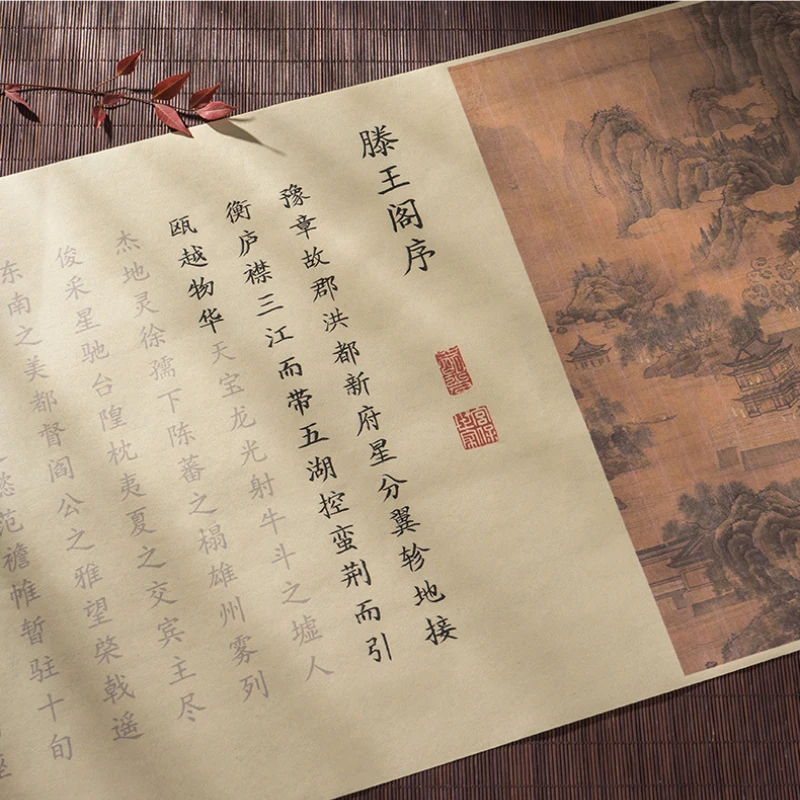 滕王阁序
豫章故郡洪都新府星分翼轸地接
衡庐襟三江而带五湖控蛮荆而引
瓯越物华天宝龙光射牛斗之墟人
杰地灵徐孺下陈蕃之榻雄州雾列
俊采星驰台隍枕夷夏之交宾主尽
东南之美都督阎公之雅望棨戟遥
懿范襜帷暂驻十旬